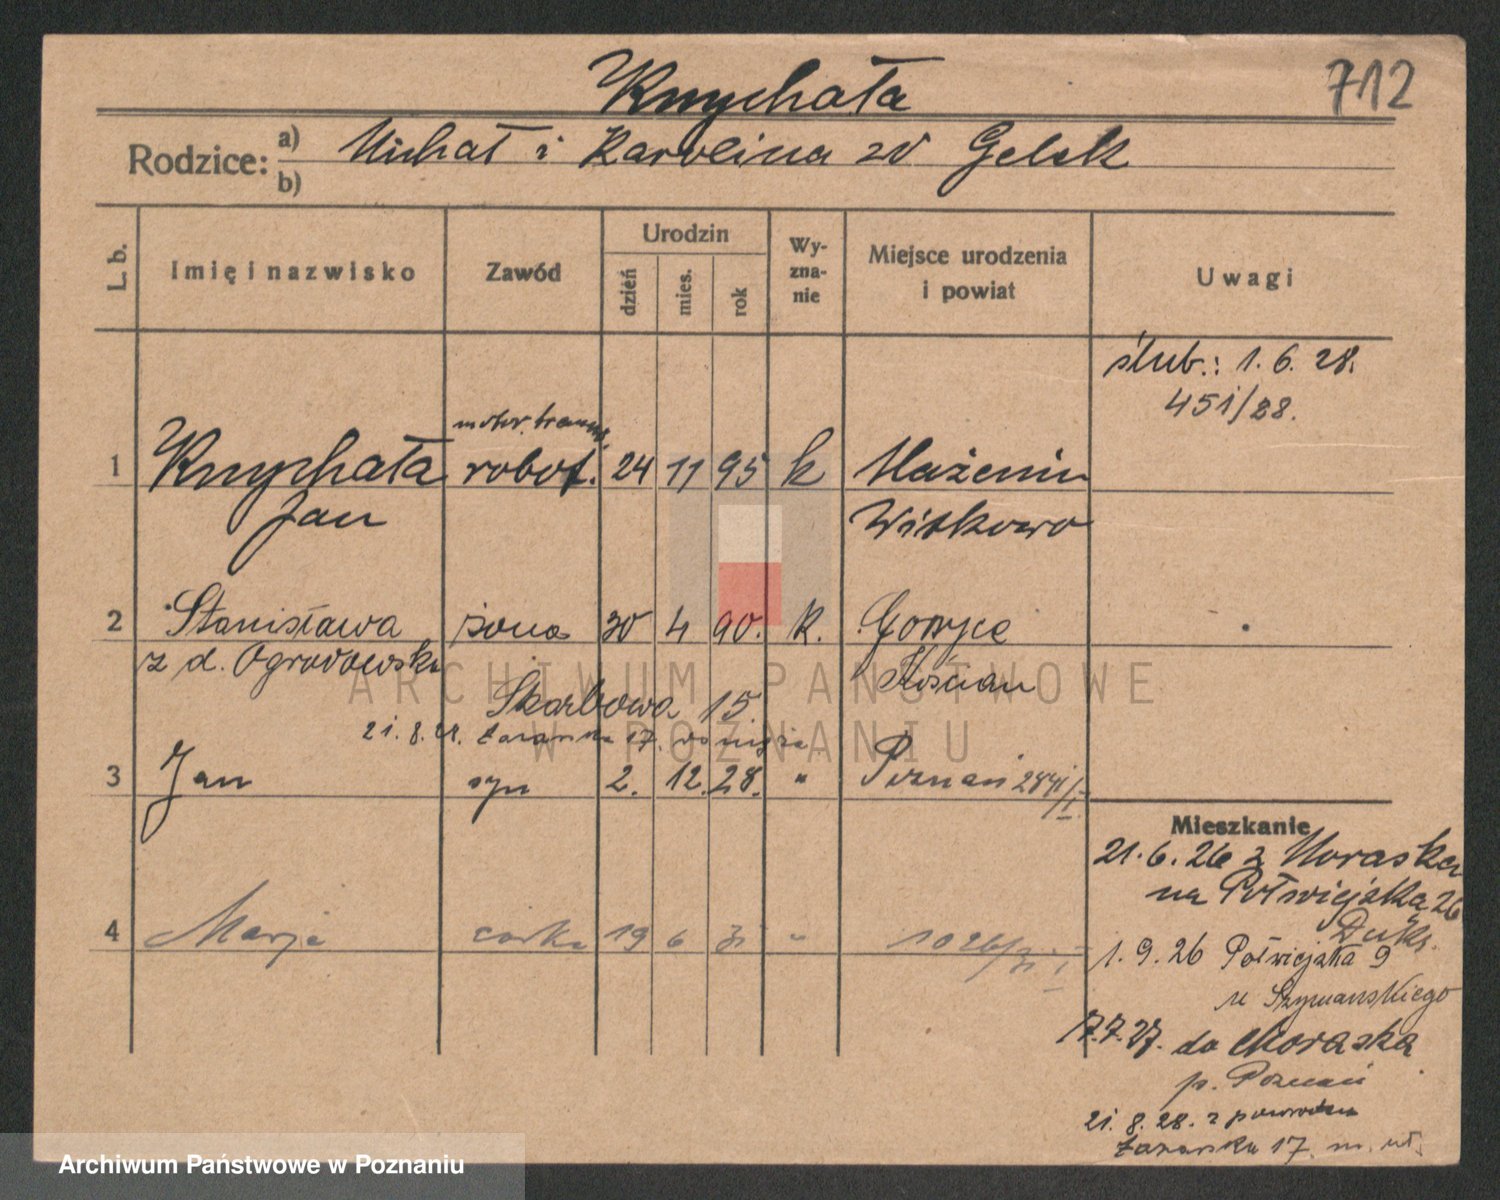 Knychała
712
Rodzice: a) Michał i Karolina zd Gelsk
b)
L. b.
Imię i nazwisko
Zawód
Urodzin
dzień
mies.
rok
Wy-
zna-
nie
Miejsce urodzenia
i powiat
Uwagi
ślub.: 1. 6. 28.
451/28.
motor. tramw.
1 Knychała robot. 24 11 95 k Mażenin
Jan Witkowo
2 Stanisława żona 30 4 90. k. Goryce
z d. Ogrodowska Kościan
Skarbowa 15
21. 8. 28. 17.
3 Jan syn 2. 12. 28. " Poznań 2841/I
Mieszkanie
21. 6. 26 z Moraska
na Półwiejska 26
4 Marja córka 19 6 31 " 1026/31 I
1. 9. 26 Półwiejska 9
u Szymańskiego
17.7.27. do Moraska
p. Poznań
21. 8. 28. z powrotem
17. m. wł.
ARCHIWUM PAŃSTWOWE
W POZNANIU
Archiwum Państwowe w Poznaniu